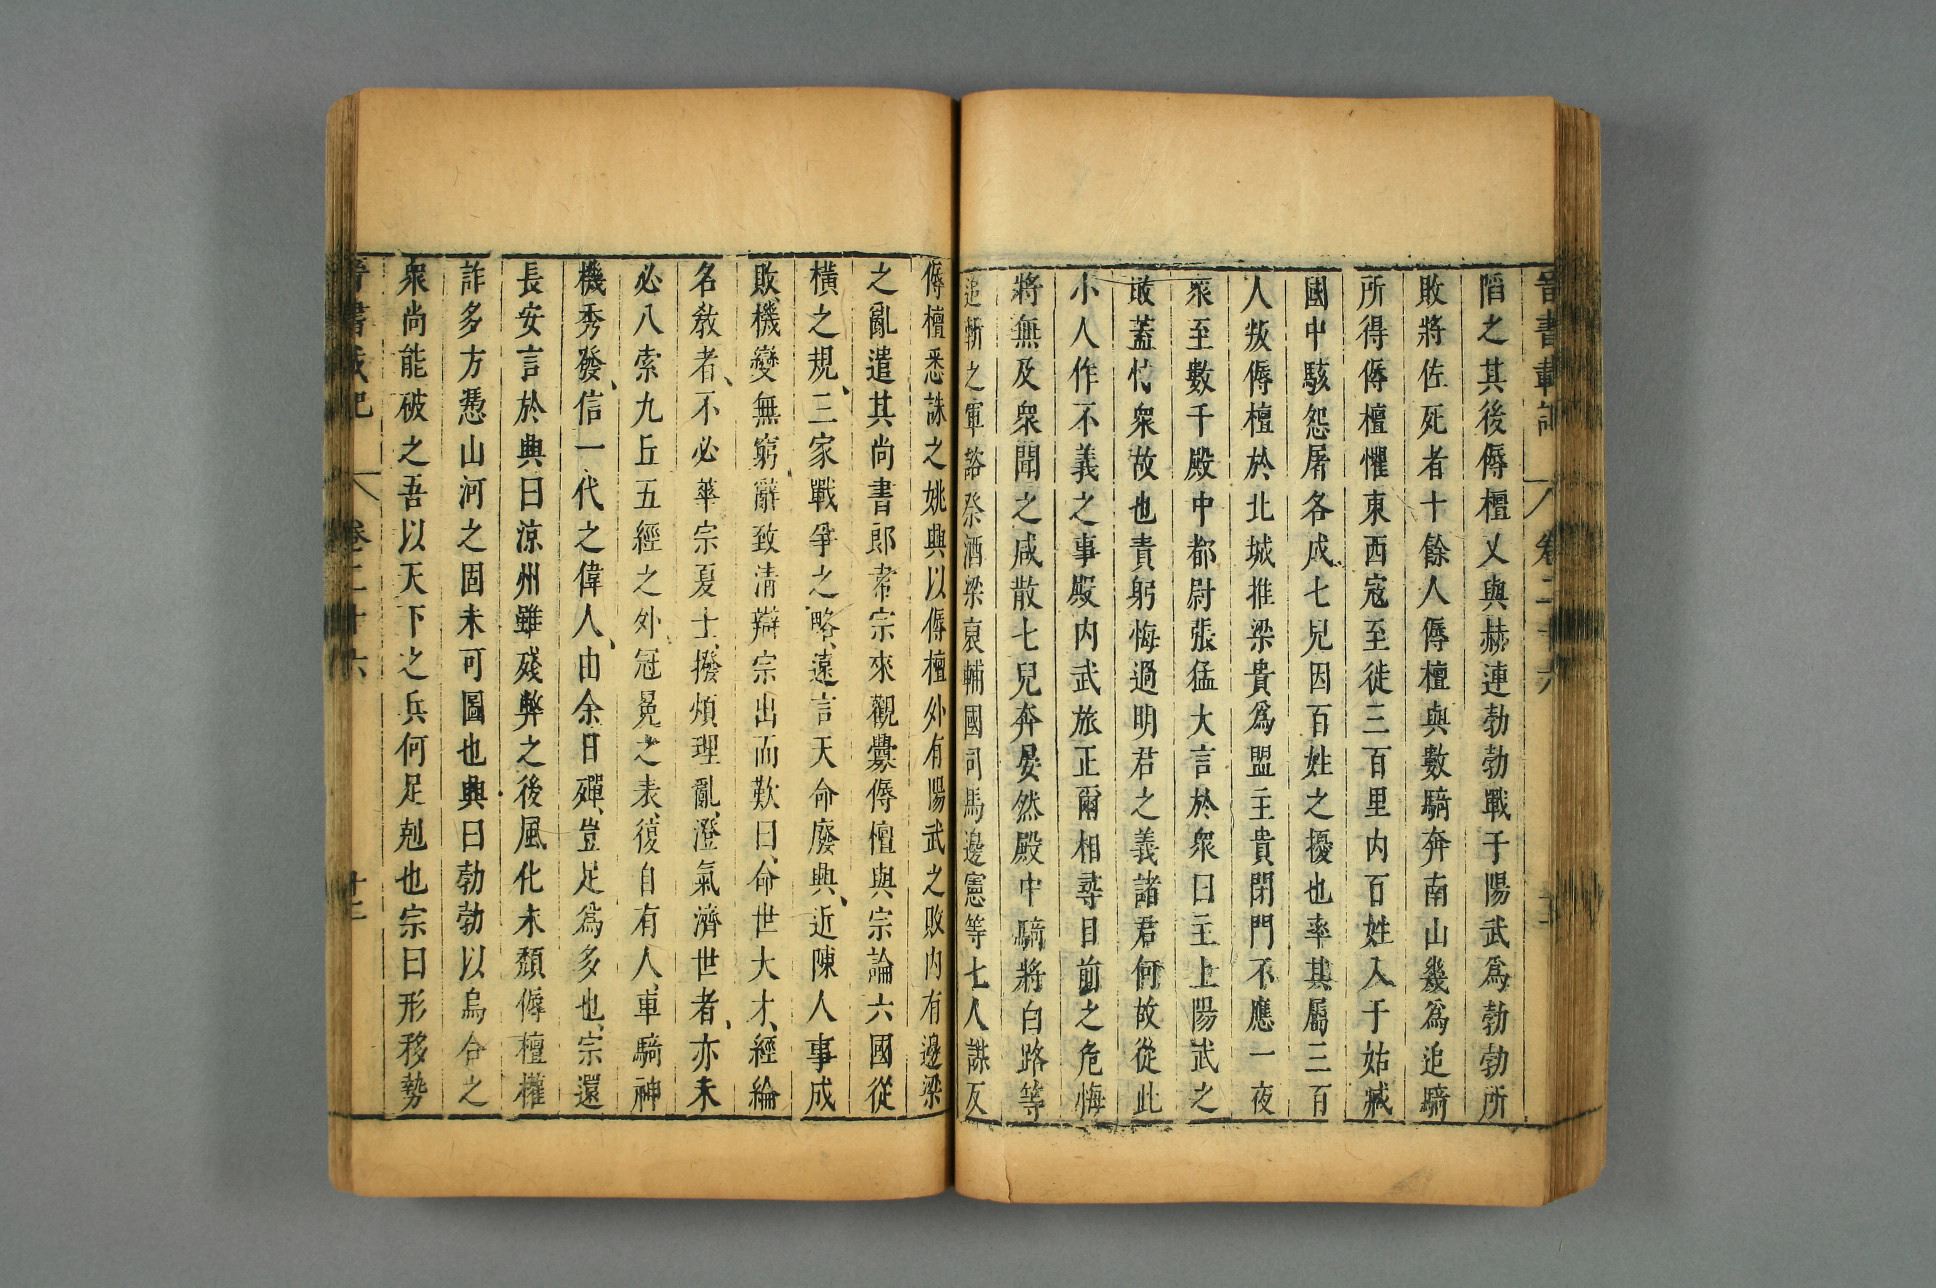 晉書載記 卷二十六
陷之其後傉檀又與赫連勃勃戰于陽武爲勃勃所
敗將佐死者十餘人傉檀與數騎奔南山幾爲追騎
所得傉檀懼東西寇至徙三百里內百姓入于姑臧
國中駭怨屠各成七兒因百姓之擾也率其屬三百
人叛傉檀於北城推梁貴爲盟主貴閉門不應一夜
衆至數千殿中都尉張猛大言於衆曰主上陽武之
敗蓋恃衆故也責躬悔過明君之義諸君何故從此
小人作不義之事殿內武旅正爾相尋目前之危悔
將無及衆聞之咸散七兒奔晏然殿中騎將白路等
追斬之軍諮祭酒梁裒輔國司馬邊憲等七人謀反
傉檀悉誅之姚興以傉檀外有陽武之敗內有邊梁
之亂遣其尚書郎韋宗來觀釁傉檀與宗論六國從
橫之規、三家戰爭之略、遠言天命廢興、近陳人事成
敗、機變無窮、辭致清辯、宗出而歎曰、命世大才、經綸
名教者、不必華宗夏士、撥煩理亂、澄氣濟世者、亦未
必八索九丘五經之外、冠冕之表、復自有人、車騎神
機秀發、信一代之偉人、由余日磾、豈足爲多也、宗還
長安言於興曰涼州雖殘弊之後風化未頹傉檀權
詐多方憑山河之固未可圖也興曰勃勃以烏合之
衆尚能破之吾以天下之兵何足剋也宗曰形移勢
晉書載記 卷二十六 十二